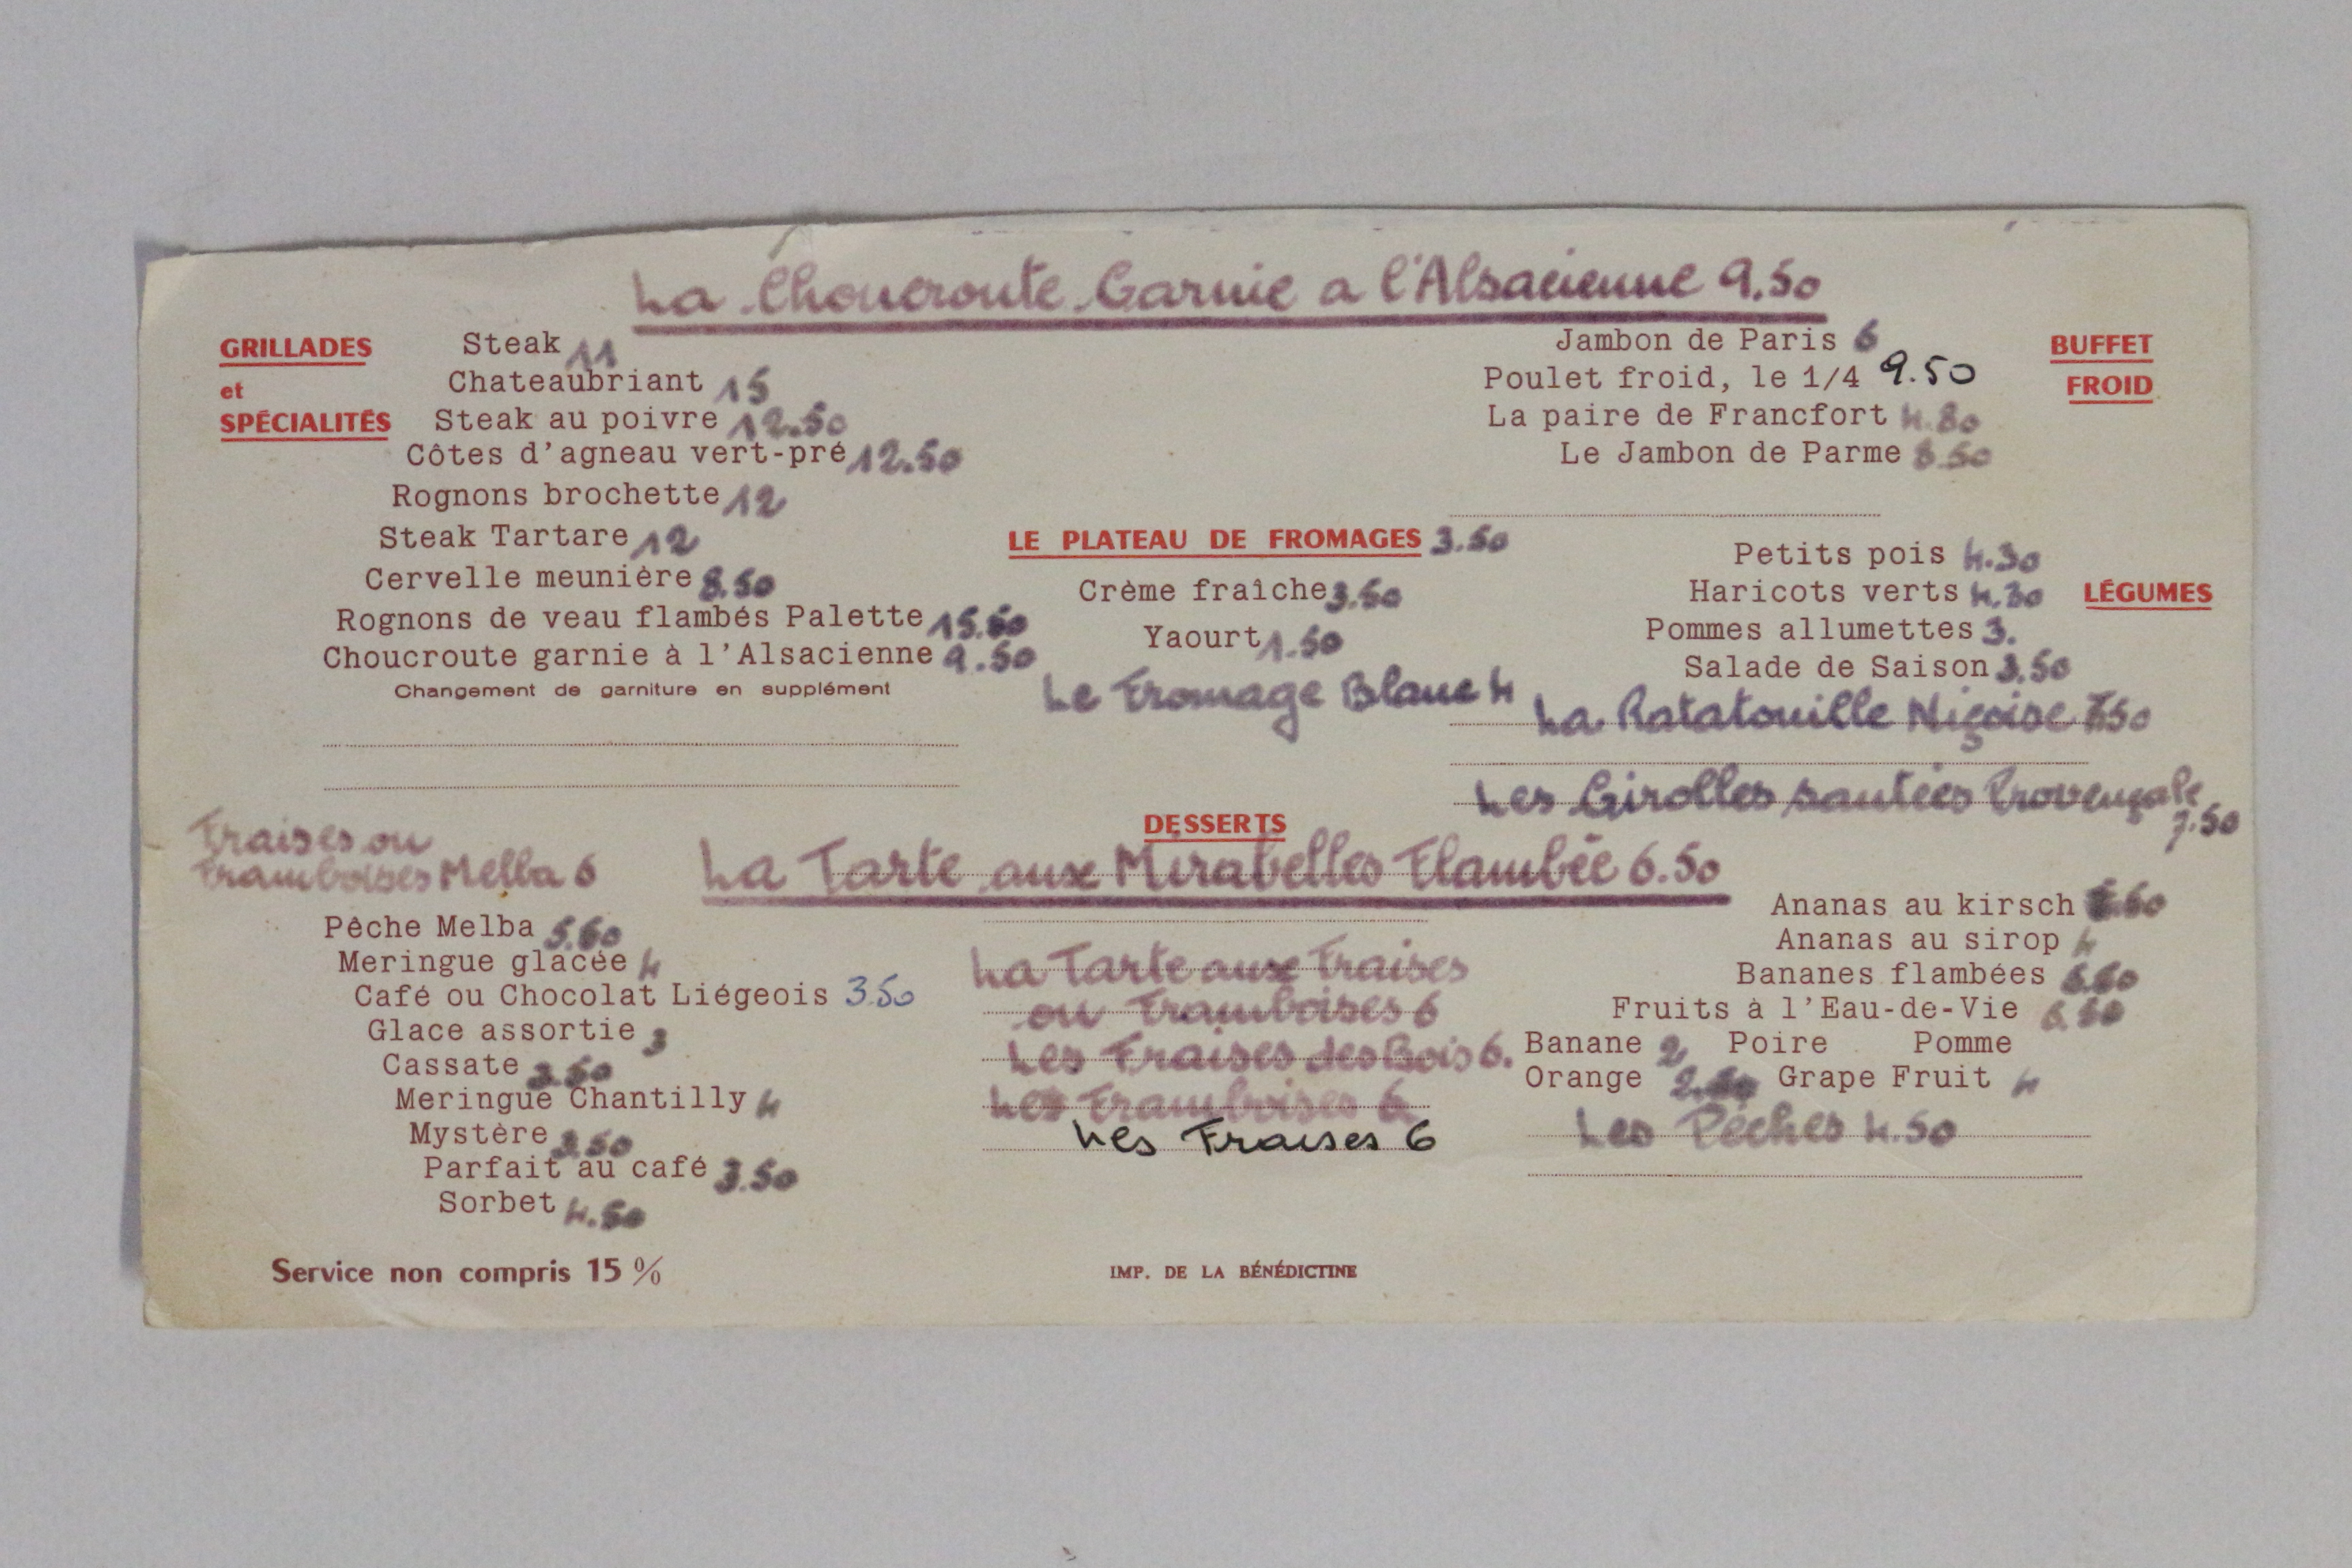 La Choucroute Garnie a l'Alsacienne 9.50
GRILLADES
et
SPÉCIALITÉS
Steak 11
Chateaubriant 15
Steak au poivre 12.50
Côtes d'agneau vert-pré 12.50
Rognons brochette 12
Steak Tartare 12
Cervelle meunière 8.50
Rognons de veau flambés Palette
Choucroute garnie à l'Alsacienne 9.50
Changement de garniture en supplément
LE PLATEAU DE FROMAGES 3.50
Crème fraîche 3.50
Yaourt 1.50
Le Fromage Blanc 4
BUFFET
FROID
Jambon de Paris 6
Poulet froid, le 1/4 9.50
La paire de Francfort 4.80
Le Jambon de Parme 8.50
LÉGUMES
Petits pois 4.30
Haricots verts 4.30
Pommes allumettes 3.
Salade de Saison 3.50
La Ratatouille Niçoise
Les Girolles sautées Provençale
7.50
DESSERTS
La Tarte aux Mirabelles Flambée 6.50
Fraises ou
Framboises Melba 6
Pêche Melba
Meringue glacée 4
Café ou Chocolat Liégeois 3.50
Glace assortie 3
Cassate 3.50
Meringue Chantilly 4
Mystère 3.50
Parfait au café 3.50
Sorbet 4.50
La Tarte aux Fraises
ou Framboises 6
Les Fraises des Bois 6.
Les Framboises 6
Les Fraises 6
Ananas au kirsch
Ananas au sirop 4
Bananes flambées
Fruits à l'Eau-de-Vie
Banane 2 Poire Pomme
Orange Grape Fruit 4
Les Pêches 4.50
Service non compris 15 %
IMP. DE LA BÉNÉDICTINE